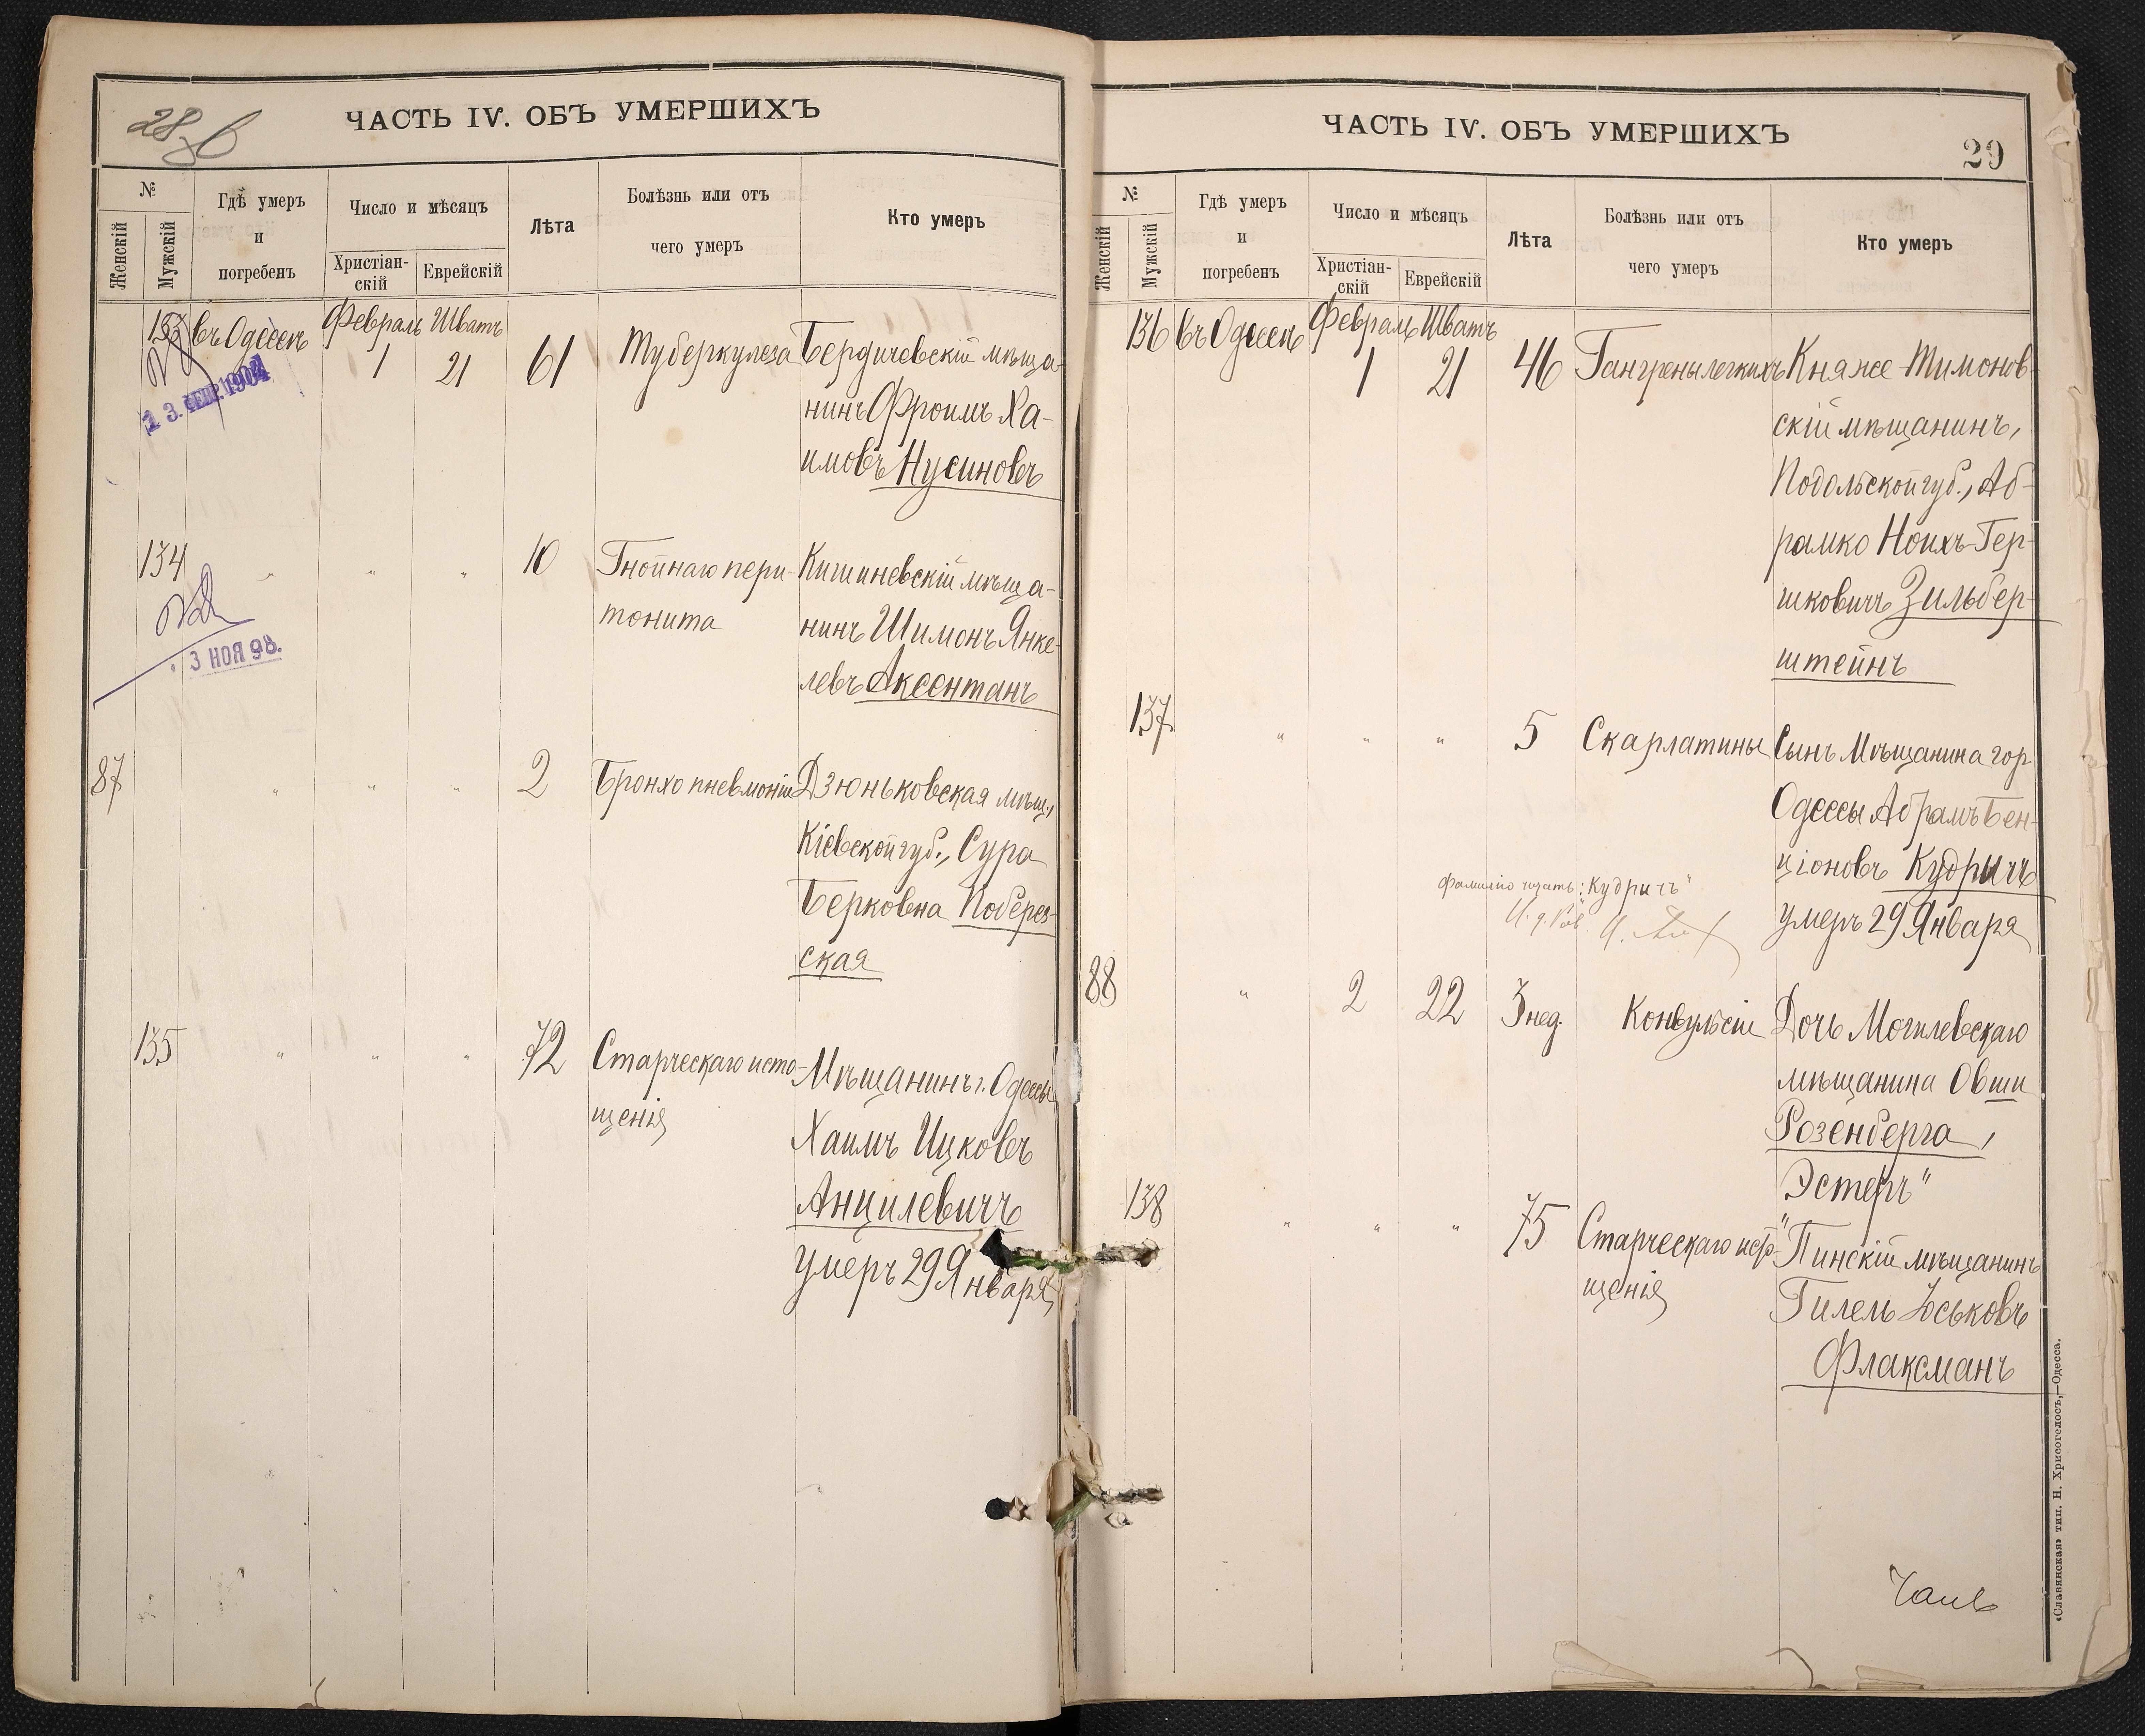 28 об
ЧАСТЬ IV. ОБЪ УМЕРШИХЪ
№
Женскій
Мужскій
Гдѣ умеръ
и
погребенъ
Число и мѣсяцъ
Христіан-
скій
Еврейскій
Лѣта
Болѣзнь или отъ
чего умеръ
Кто умеръ
133 въ Одессѣ Февраль Шватъ
1 21 61 Туберкулеза Бердичевскій мѣща-
нинъ Фроимъ Ха-
имовъ Нусиновъ
13. СЕН. 1904
134 " " " 10 Гнойнаго пери- Кишиневскій мѣща-
тонита нинъ Шимонъ Янке-
левъ Аксентанъ
3 НОЯ 98.
87 " " " 2 Бронхо пневмоніи Дзюньковская мѣщ.,
Кіевской губ., Сура
Берковна Поберез-
ская
135 " " " 72 Старческаго исто- Мѣщанинъ г. Одессы
щенія Хаимъ Ицковъ
Анцилевичъ
умеръ 29 Января
ЧАСТЬ IV. ОБЪ УМЕРШИХЪ
29
№
Женскій
Мужскій
Гдѣ умеръ
и
погребенъ
Число и мѣсяцъ
Христіан-
скій
Еврейскій
Лѣта
Болѣзнь или отъ
чего умеръ
Кто умеръ
136 въ Одессѣ Февраль Шватъ
1 21 46 Гангрены легкихъ Княже-Тимонов-
скій мѣщанинъ,
Подольской губ., Аб-
рамко Ноихъ-Гер-
шковичъ Зильбер-
штейнъ
137 " " " 5 Скарлатины Сынъ мѣщанина гор
Одессы Абрамъ Бен-
ціоновъ Кудричъ
умеръ 29 Января
фамилію читать: "Кудричъ"
88 " 2 22 3 нед. Конвульсіи Дочь Могилевскаго
мѣщанина Овши
Розенберга,
"Эстеръ"
138 " " " 75 Старческаго исто- Пинскій мѣщанинъ
щенія Гилель Іоськовъ
Флаксманъ
«Славянская» тип. Н. Хрисогелосъ,—Одесса.